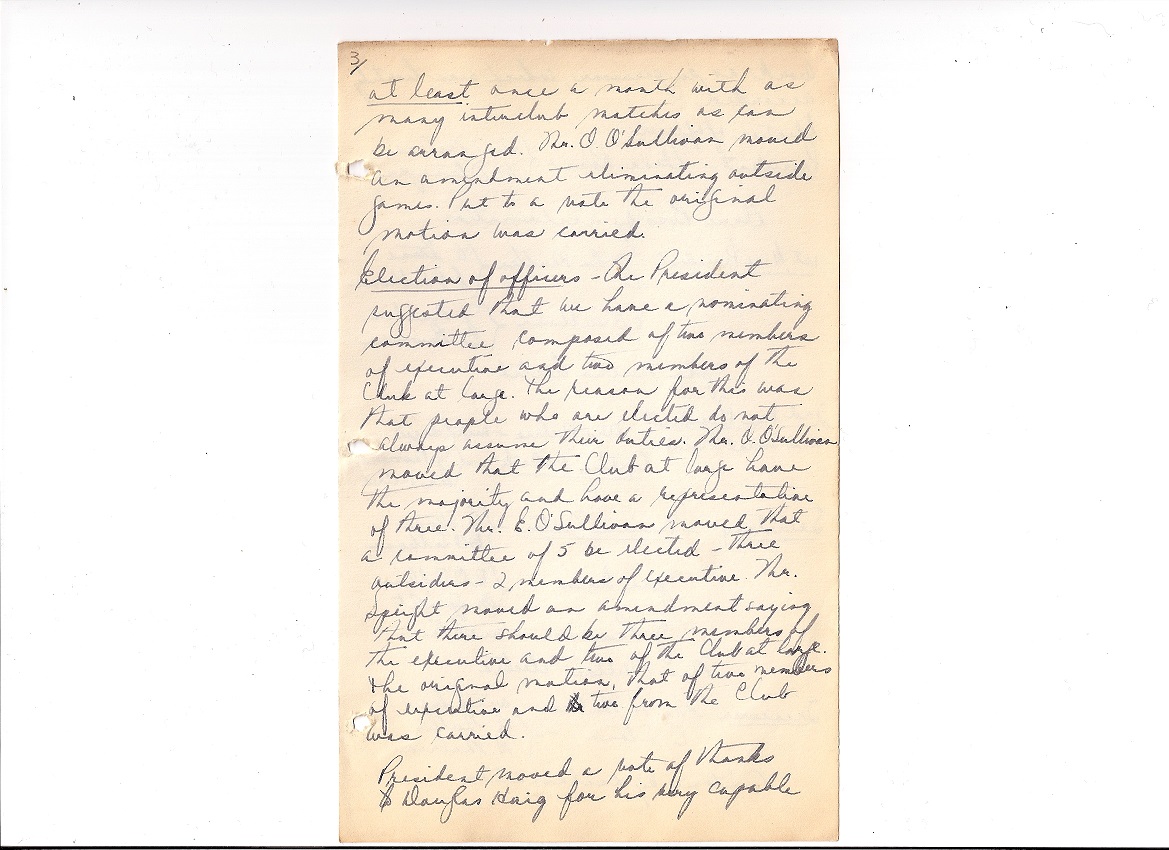 3/
at least once a month with as
many interclub matches as can
be arranged. Mr. O. O'Sullivan moved
an amendment eliminating outside
games. Put to a vote the original
motion was carried.
Election of officers - The President
suggested that we have a nominating
committee composed of two members
of executive and two members of the
Club at large. The reason for this was
that people who are elected do not
always assume their duties. Mr. O. O'Sullivan
moved that the Club at large have
the majority and have a representative
of three. Mr. E. O'Sullivan moved that
a committee of 5 be elected - three
outsiders - 2 members of executive. Mr.
Speight moved an amendment saying
that there should be three members of
the executive and two of the Club at large.
The original motion, that of two members
of executive and two from the Club
was carried.
President moved a vote of thanks
to Douglas Haig for his very capable